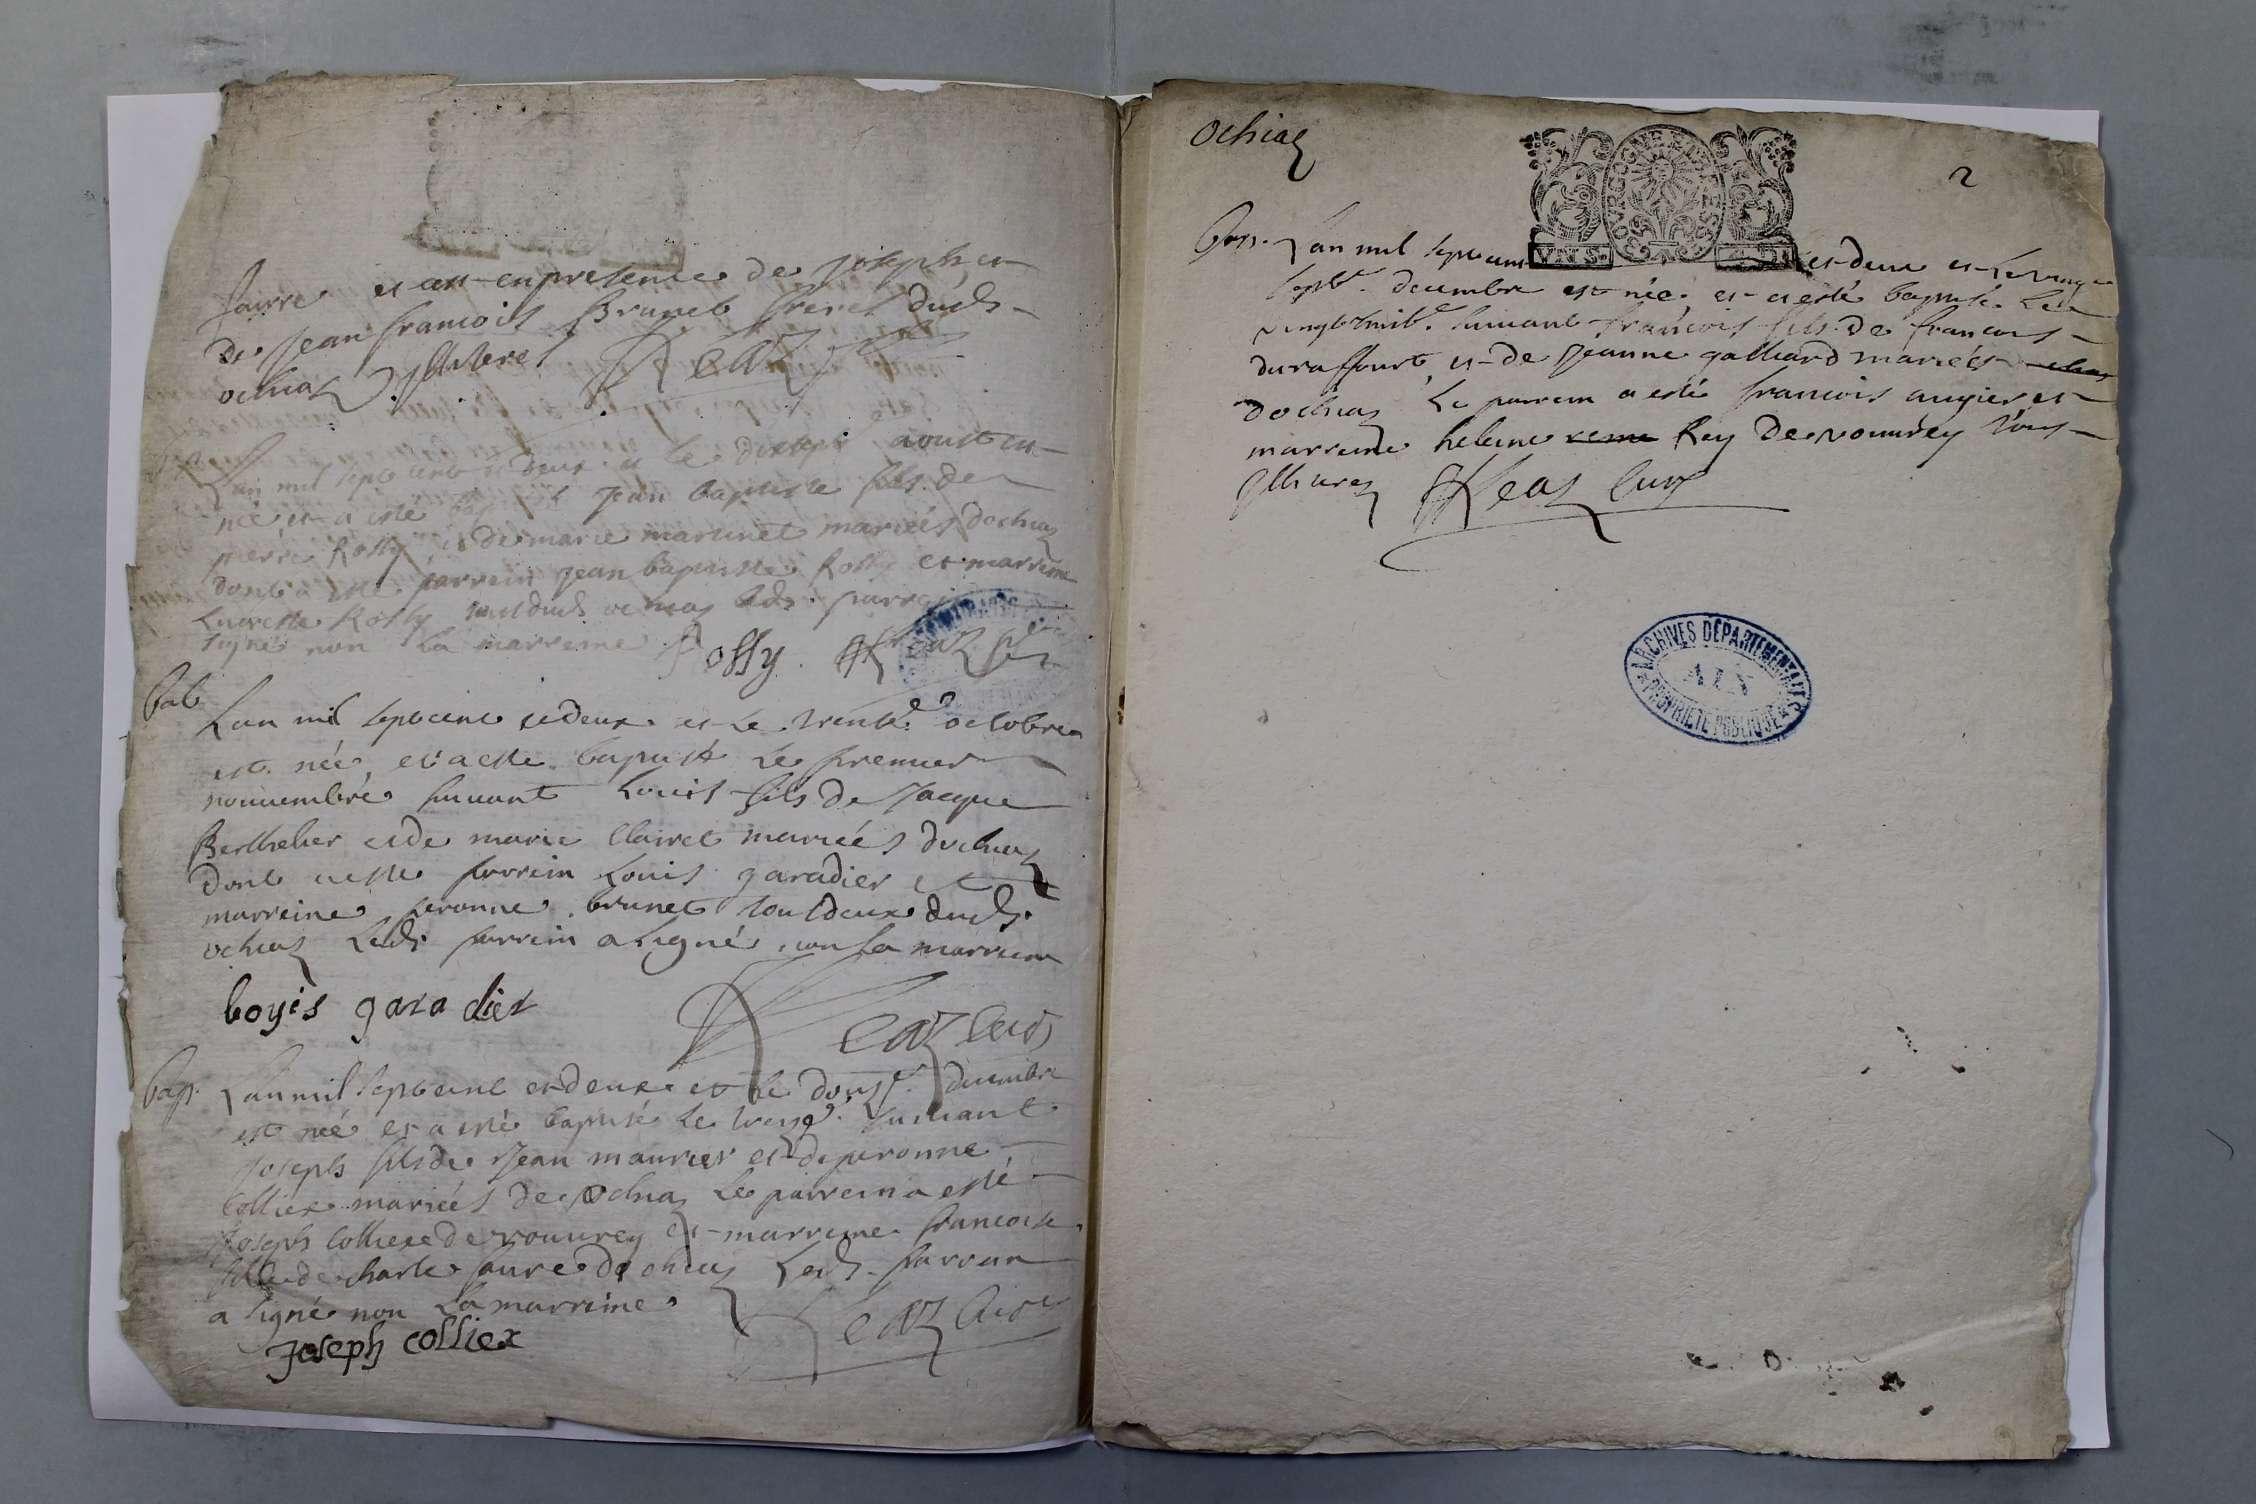 faivre et ce en presence de Joseph et
de Jean francois Brunet freres dud.
ochiaz illiteres Reaz
Lan mil sept cent et deux et le dixsept aoust est
née et a esté bap Jean baptiste fils de
pierre Rossy et de marie martinet mariés dochiaz
dont a esté parrein Jean baptiste Rossy et marreine
Lucresse Rossy tous dud. ochiaz led. parrein
signé non la marreine Rossy. Reaz
bab
Lan mil sept cent et deux et le trente octobre
est née et a esté baptisé le premier
nouuembre suiuant Louis fils de Jacque
Berthelier et de marie Clairet mariés dochiaz
dont a esté parrein Louis garadier et
marreine peronne brunet tous deux dud.
ochiaz Led. parrein a signé non la marreine
loyis garadier
Reaz curé
bap. Lan mil sept cent et deux et le douze decembre
est née et a esté baptisé le treize suiuant
Joseph fils de Jean maurier et de peronne
Colliex mariés de ochiaz Le parrein a esté
Joseph Colliex de vouurey et marreine francoise
fille de charle faure dochiaz Led. parrein
a signé non La marreine Reaz curé
Joseph colliex
ochiaz
2
GOVRGOGNE
VN S.
bap. Lan mil sept cent et deux et le vingt
sept decembre est née et a esté baptisé Le
vingt huit suiuant francois fils de francois
duraffourt et de Jeanne galliard mariés
dochiaz Le parrein a esté francois augier et
marreine helene Rey de vouurey tous
illiteres Reaz curé
ARCHIVES DÉPARTEMENTALES
AIN
PROPRIÉTÉ PUBLIQUE